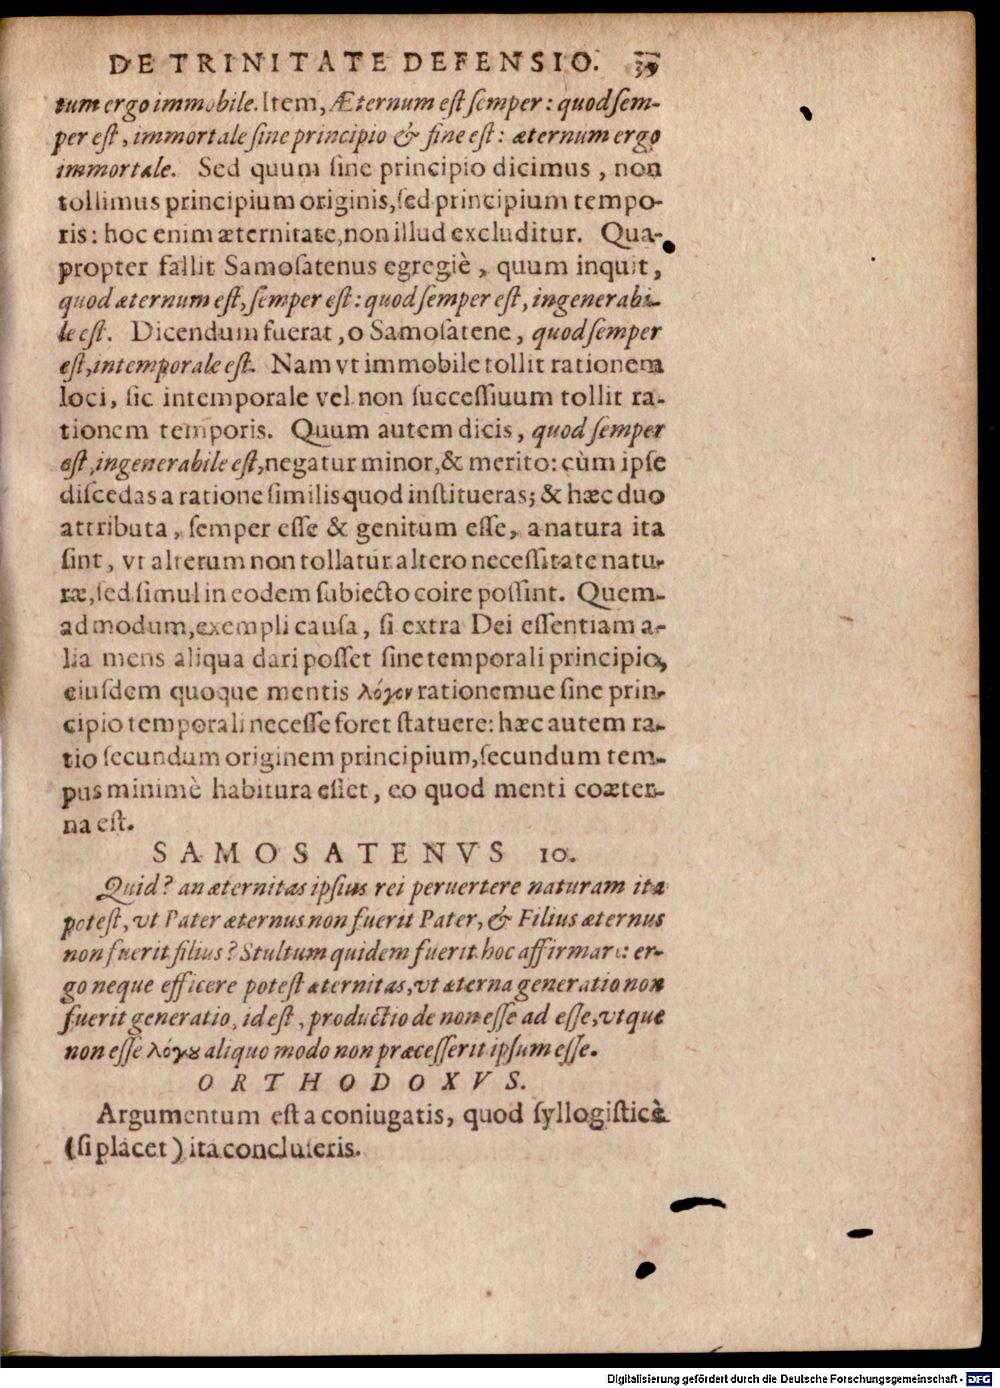 DE TRINITATE DEFENSIO. 39
tum ergo immobile. Item, Æternum eſt ſemper: quod ſem-
per eſt, immortale ſine principio & fine eſt: æternum ergo
immortale. Sed quum ſine principio dicimus, non
tollimus principium originis, ſed principium tempo-
ris: hoc enim æternitate, non illud excluditur. Qua-
propter fallit Samoſatenus egregiè, quum inquit,
quod æternum eſt, ſemper eſt: quod ſemper eſt, ingenerabi-
le eſt. Dicendum fuerat, o Samoſatene, quod ſemper
eſt, intemporale eſt. Nam vt immobile tollit rationem
loci, ſic intemporale vel non ſucceſſiuum tollit ra-
tionem temporis. Quum autem dicis, quod ſemper
eſt, ingenerabile eſt, negatur minor, & merito: cùm ipſe
diſcedas a ratione ſimilis quod inſtitueras; & hæc duo
attributa, ſemper eſſe & genitum eſſe, a natura ita
ſint, vt alterum non tollatur altero neceſſitate natu-
ræ, ſed ſimul in eodem ſubiecto coire poſſint. Quem-
admodum, exempli cauſa, ſi extra Dei eſſentiam a-
lia mens aliqua dari poſſet ſine temporali principio,
eiuſdem quoque mentis λόγον rationemue ſine prin-
cipio temporali neceſſe foret ſtatuere: hæc autem ra-
tio ſecundum originem principium, ſecundum tem-
pus minimè habitura eſſet, eo quod menti coæter-
na eſt.
SAMOSATENVS 10.
Quid? an æternitas ipſius rei peruertere naturam ita
poteſt, vt Pater æternus non fuerit Pater, & Filius æternus
non fuerit filius? Stultum quidem fuerit hoc affirmare: er-
go neque efficere poteſt æternitas, vt æterna generatio non
fuerit generatio, id eſt, productio de non eſſe ad eſſe, vtque
non eſſe λόγȣ aliquo modo non præceſſerit ipſum eſſe.
ORTHODOXVS.
Argumentum eſt a coniugatis, quod ſyllogiſticè
(ſi placet) ita concluſeris.
Digitalisierung gefördert durch die Deutsche Forschungsgemeinschaft - DFG